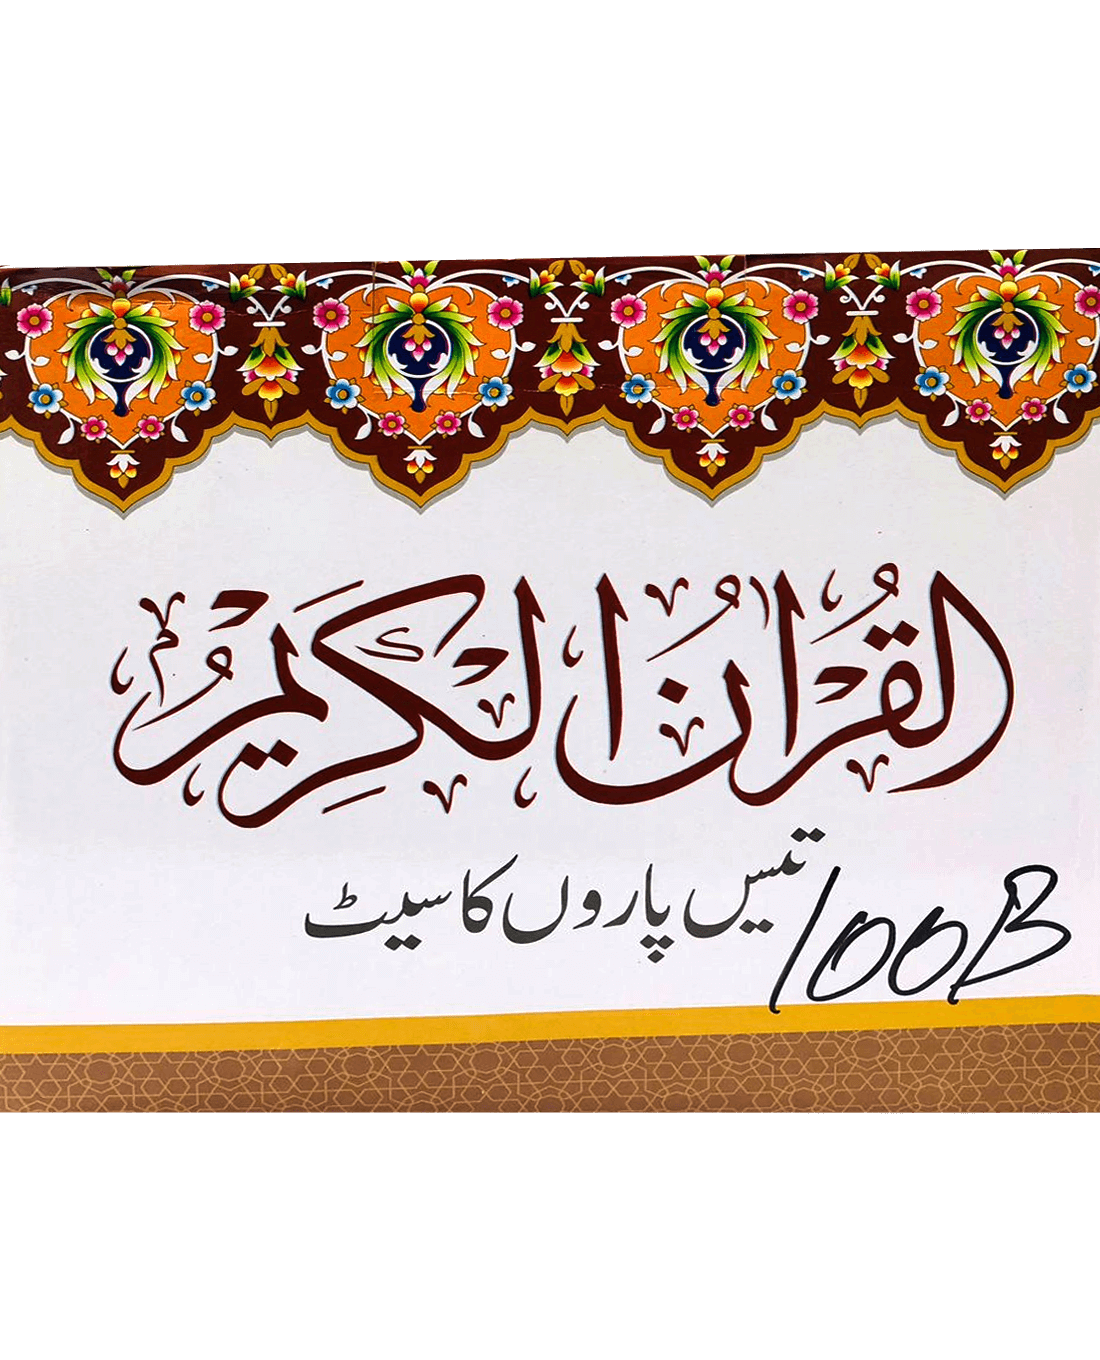 القرآن الكريم
تیس پاروں کا سیٹ
100B